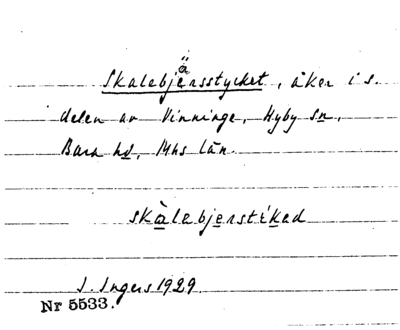 Skalebjersstycket, åker i s.
ä
delen av Vinninge, Hyby sn,
Bara hd, Mhs län.
skàlebjerstiked
I. Ingers 1929.
Nr 5533.